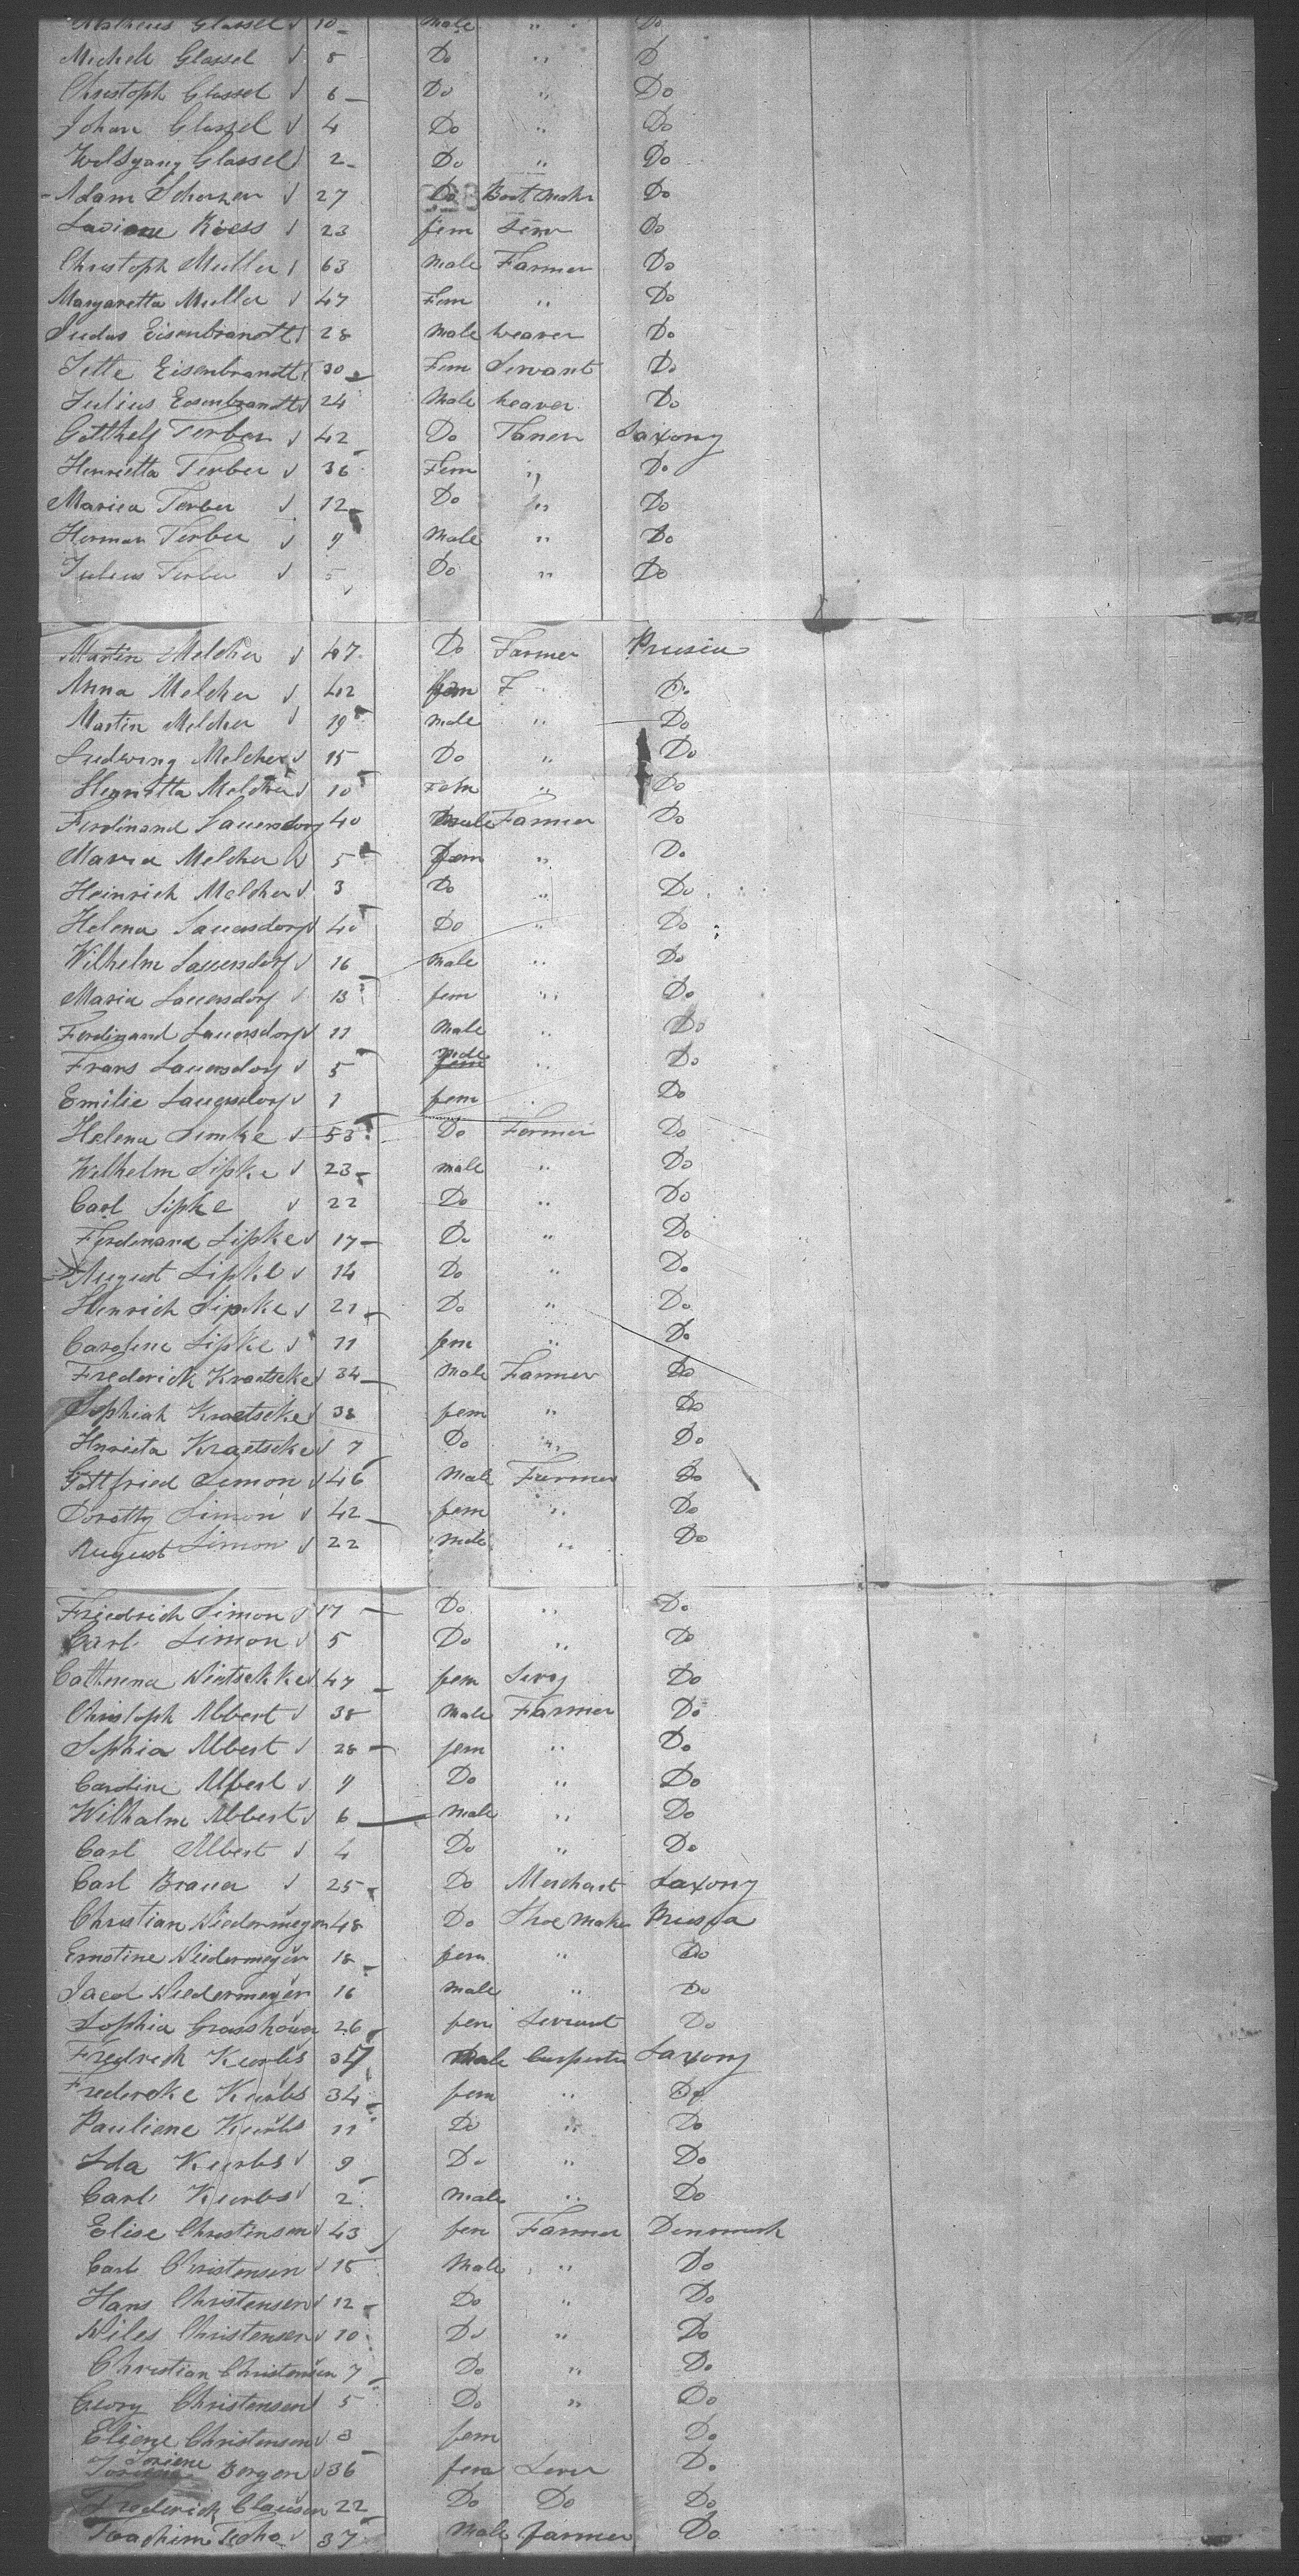 Glassel √ 10 Male " Do
Michell Glassel √ 8 Do " D
Christoph Glassel √ 6 Do " Do
Johan Glassel √ 4 Do " Do
Wolfgang Glassel 2 Do " Do
Adam Scherzer √ 27 Do Boot Makr Do
Roess √ 23 fem Serv Do
Christoph Muller √ 63 Male Farmer Do
Margaretta Muller √ 47 Fem " Do
Judas Eisenbrandt √ 28 Male weaver Do
Jette Eisenbrandt √ 30 Fem Servant Do
Julius Eosenbrandt √ 24 Male weaver Do
Gotthelf Ferber √ 42 Do Taner Saxony
Henrietta Ferber √ 36 Fem " Do
Mariea Ferber √ 12 Do " Do
Herman Ferber √ 9 Male " Do
Julius Ferber √ 5 Do " Do
Martin Melcher √ 47 Do Farmer Prusia
Anna Melcher √ 42 fem F " Do
Martin Melcher √ 19 male " Do
Ludwing Melcher √ 15 Do " Do
Henrietta Melcher √ 10 Fem " Do
Ferdinand Lauersdorf 40 Male Farmer Do
Maria Melcher √ 5 fem " Do
Heinrich Melcher √ 3 Do " Do
Helena Lauersdorf √ 40 Do " Do
Wilhelm Lauersdorf √ 16 male " Do
Maria Lauersdorf √ 13 fem " Do
Ferdinand Lauersdorf √ 11 Male " Do
Frans Lauersdorf √ 5 male fem " Do
Emilie Lauersdorf √ 1 fem " Do
Helena Limke √ 53 Do Farmer Do
Wilhelm Lipke √ 23 male " Do
Carl Lipke √ 22 Do " Do
Ferdinand Lipke √ 17 Do " Do
August Lipke √ 14 Do " Do
Henrich Lipke √ 21 Do " Do
Caroline Lipke √ 11 fem " Do
Frederick Kraetseke √ 34 Male Farmer Do
Sophiah Kraetseke √ 38 fem " Do
Hnrieta Kraetseke √ 7 Do " Do
Gottfried Simon √ 46 Male Farmer Do
Dorotty Simon √ 42 fem " Do
August Simon √ 22 Male " Do
Friedrich Simon √ 17 Do " Do
Carl Simon √ 5 Do " Do
Catherena √ 47 fem Serv Do
Christoph Albert √ 38 Male Farmer Do
Sophia Albert √ 28 fem " Do
Caroline Albert √ 9 Do " Do
Wilhalm Albert √ 6 Male " Do
Carl Albert √ 4 Do " Do
Carl Brauer √ 25 Do Merchant Saxony
Christian Niedermeyer 48 Do Shoe Make Prussia
Ernstine Niedermeyer 18 fem " Do
Jacob Niedermeyer 16 Male " Do
Sophia 26 fem Servant Do
Fredrich Kurbs 37 Male Carpenter Saxony
Fredereke Kurbs 34 fem " Do
Pauliene Kurbs 11 Do " Do
Ida Kurbs √ 9 Do " Do
Carl Kurbs √ 2 Male " Do
Elise Christensen √ 43 fem Farmer Denmark
Carl Christensen √ 15 Male " Do
Hans Christensen √ 12 Do " Do
Niles Christensen √ 10 Do " Do
Christian Christensen 7 Do " Do
Georg Christensen 5 Do " Do
Eliene Christensen √ 3 fem Do
Bergen √ 36 fem Serv Do
Frederick Clausen 22 Do Do Do
Joachim √ 37 Male farmer Do